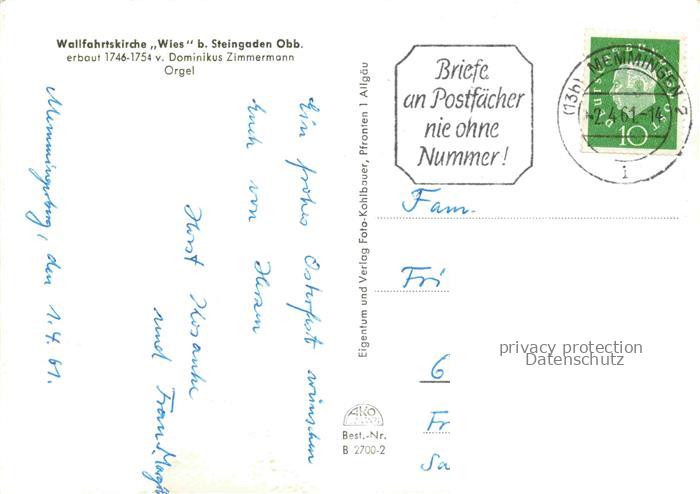 Wallfahrtskirche „Wies" b. Steingaden Obb.
erbaut 1746-1754 v. Dominikus Zimmermann
Orgel
Memmingerberg, den 1.4.61.
Ein frohes Osterfest wünschen
Euch von Herzen
Horst Kosanke
und Frau Margit
Eigentum und Verlag Foto-Kohlbauer, Pfronten 1 Allgäu
AKO
Best.-Nr.
B 2700-2
Briefe
an Postfächer
nie ohne
Nummer!
(13b) MEMMINGEN 2
-2.4.61-14
i
DEUTSCHE BUNDESPOST
10
Fam.
Fri
6
Fr
Sa
privacy protection
Datenschutz